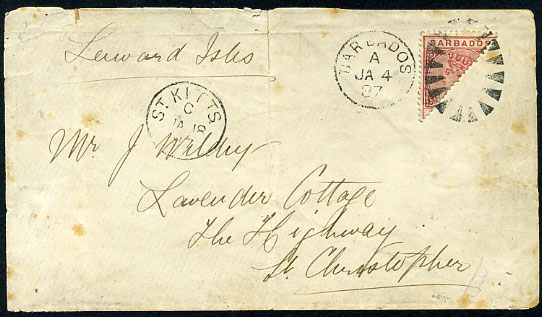 Leeward Isles
BARBADOS
A
JA 4
87
BARBADOS
ST. KITTS
C
JA
Mr J
Lavender Cottage
The Highway
St. Christopher